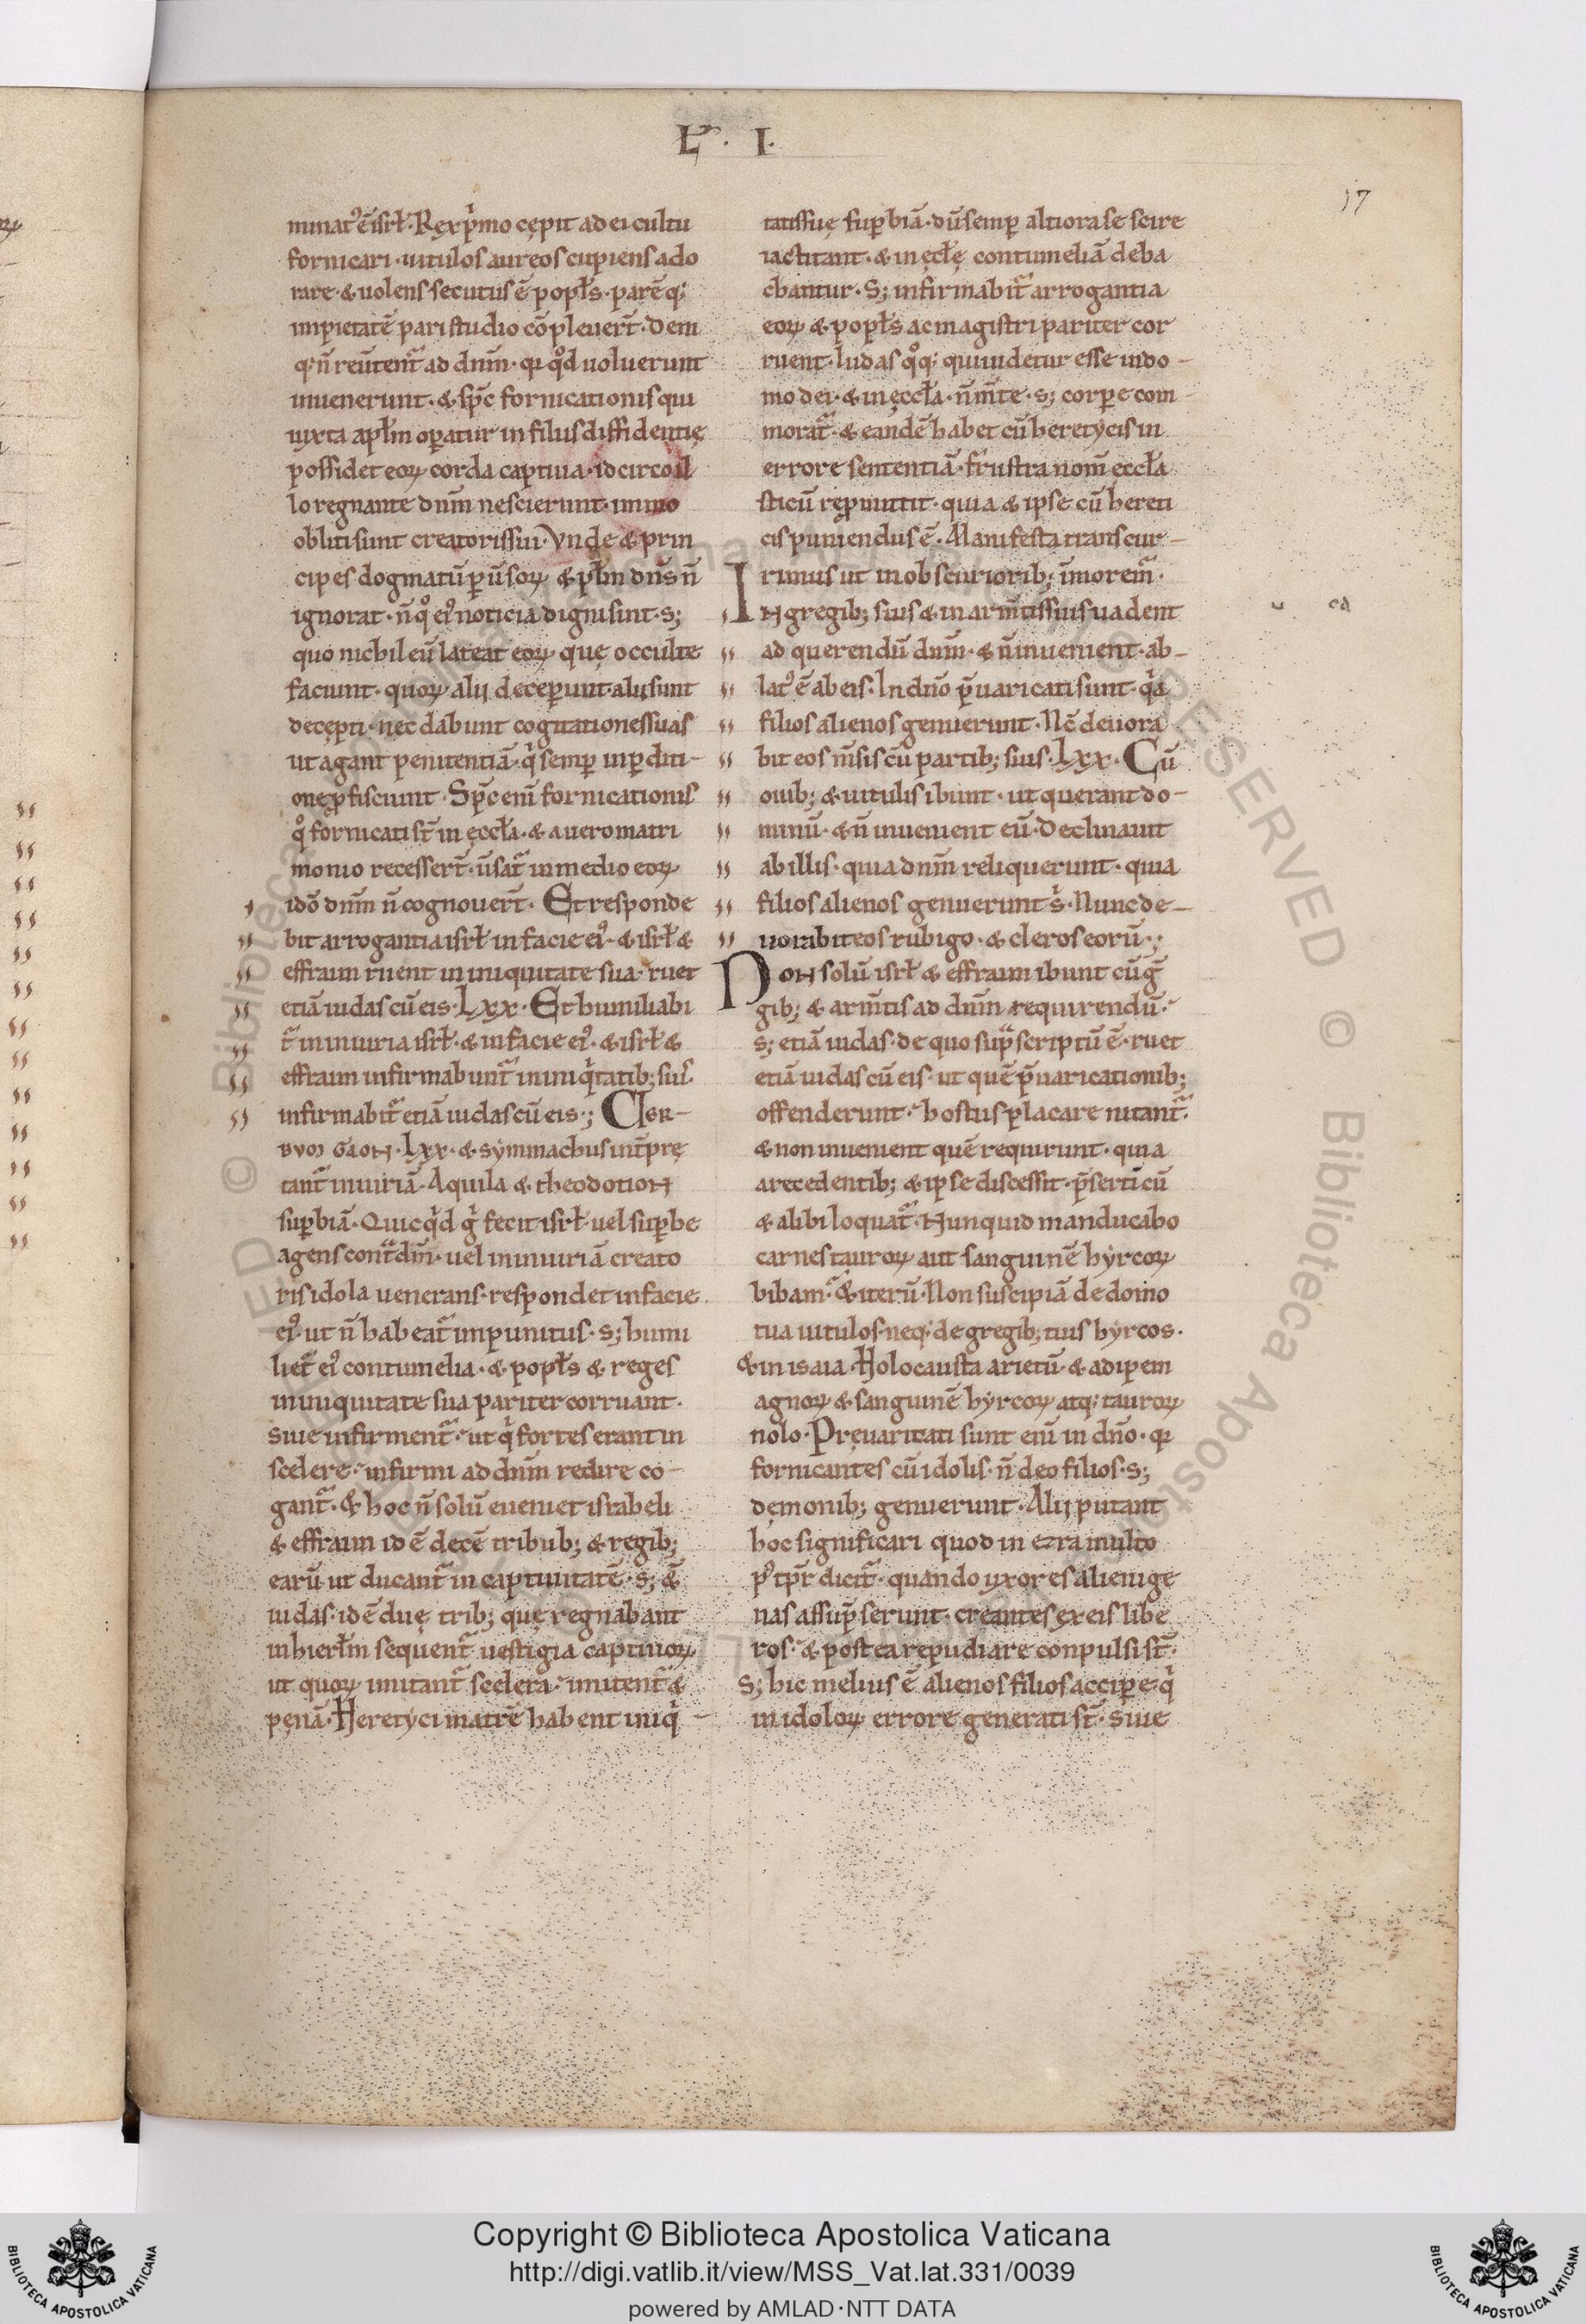 Lꝭ · I ·
17
minat᷒ ē isrł · Rex p̍mo cępit ad ei cultu
fornicari · uitulos aureos cupiens ado
rare · & uolens secutus ē popłs · parēq;
impietatē pari studio cō̄pleuer̄t · Dem
q; n̄ reūtent᷑ ad dn̄m · qꝛ qd̊ uoluerunt
inuenerunt · & sp̄c fornicationis qui
iuxta apłm op̱atur in filiis diffidentię
possidet eoꝝ corda captiua · idcirco il
lo regnante dn̄m nescierunt · immo
obliti sunt creatoris sui · Vnde & prin
cipes dogmatū puersoꝝ & płm dn̄s n̄
ignorat · n̄ qo̊ ei᷒ noticia digni sint · s;
quo nichil eū lateat eoꝝ quę occulte
faciunt · quoꝝ alij deceper̄unt · alii sunt
decępti · nec dabunt cogitationes suas
ut agant penitentiā · q̍ semp̱ in p̱diti-
onē ꝓficiunt · Sp̄c enī fornicationis
qo̊ fornicati st̄ in ęccła · & a uero matri
monio recesser̄t · ūsat᷑ in medio eoꝝ
idō dn̄m n̄ cognouer̄t · Et responde
bit arrogantia isrł in facie ei᷒ · & isrł &
effraim ruent in iniquitate sua · ruet
etiā iudas cū eis · Lxx · Et humiliabi
t᷑ in iniuria isrł · & in facie ei᷒ · & isrł &
effraim infirmabunt᷑ in iniq̍tatib; sui᷒ ·
infirmabit᷑ etiā iudas cū eis ·; Cꟾer-
ʙʏoɴ ɢaoɴ · Lxx · & symmachus int̄prę
tant᷑ iniuriā · Aquila & theodotion
sup̱biā · Quicq̍d g̍ fecit isrł · uel sup̱be
agens contᷓ dn̄m · uel in iniuriā creato
ris idola uenerans · respondet in facie
ei᷒ · ut n̄ habeat᷑ impunitus · s; humi
liet᷑ ei᷒ contumelia · & popłs & reges
in iniquitate sua pariter corruant ·
siue infirment᷑ · ut q̍ fortes erant in
scelere · infirmi ad dn̄m redire co-
gant᷑ · & hoc n̄ solū eueniet israheli
& effraim id ē decē tribub; & regib;
earū ut ducant᷑ in captiuitatē · s; &
iudas · id ē duę trib; quę regnabant
in hierłm sequent᷑ uestigia captiuoꝝ
ut quoꝝ imitant᷑ scelera · imitent᷑ &
penā · Heretyci matrē habent iniq̍-
tatis suę sup̱biā · dū semp̱ altiora se scire
iactitant · & in ęcłę contumeliā deba
chantur · S; infirmabit᷑ arrogantia
eoꝝ & popłs ac magistri pariter cor
ruent · Iudas qo̊q; qui uidetur esse in do-
mo dei · & in ęccła · n̄ m̄te · s; corp̱e com-
morat᷑ · & eandē habet cū heretycis in
errore sententiā · frustra nom̄ eccła
sticū reꝓmittit · quia & ipse cū hereti
cis puniendus ē · Manifesta transcur-
rimus ut in obscuriorib; īmorem᷑ ·
In gregib; suis & in arm̄tis suis uadent
ad querendū dn̄m · & n̄ inuenient · ab-
lat᷒ ē ab eis · In dn̄o p̄uaricati sunt · qᷓa
filios alienos genuerunt · Nc̄ deuora
bit eos m̄sis cū partib; suis · Lxx · Cū
ouib; & uitulis ibunt · ut querant do-
minū · & n̄ inuenient eū · Declinauit
ab illis · quia dn̄m reliquerunt · quia
filios alienos genuerunt s̍ · Nunc de-
uorabit eos rubigo · & cleros eorū ·;
Non solū isrł & effraim ibunt cū ḡ
gib; & arm̄tis ad dn̄m requirendū ·
s; etiā iudas · de quo supᷓ scriptū ē · ruet
etiā iudas cū eis · ut quē p̄uaricationib;
offenderunt · hostiis placare nitant᷑ ·
& non inuenient quē requirunt · quia
a recedentib; & ipse discessit · p̄sertī cū
& alibi loquat᷑ · Nunquid manducabo
carnes tauroꝝ aut sanguinē hyrcoꝝ
bibam · & iterū · Non suscipiā de domo
tua uitulos · neq; de gregib; tuis hyrcos ·
& in isaia · Holocausta arietū & adipem
agnoꝝ & sanguinē hyrcoꝝ atq; tauroꝝ
nolo · Pręuaricati sunt enī in dn̄o · qꝛ
fornicantes cū idolis · n̄ deo filios · s;
dęmonib; genuerunt · Alij putant
hoc significari quod in ezra multo
p᷒ tp̄r dicit᷑ · quando uxores alienige
nas assūpserunt · creantes ex eis libe
ros · & postea repudiare conpulsi st̄ ·
S; hic melius ē alienos filios accip̱e · q̍
in idoloꝝ errore generati st̄ · siue
u ca
Copyright © Biblioteca Apostolica Vaticana
http://digi.vatlib.it/view/MSS_Vat.lat.331/0039
powered by AMLAD · NTT DATA
BIBLIOTECA APOSTOLICA VATICANA
BIBLIOTECA APOSTOLICA VATICANA